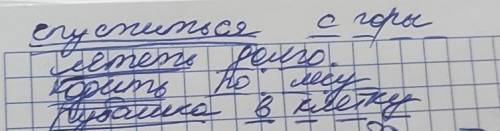 спуститься с горы
лететь долго.
ходить по лесу
рубашка в клетку